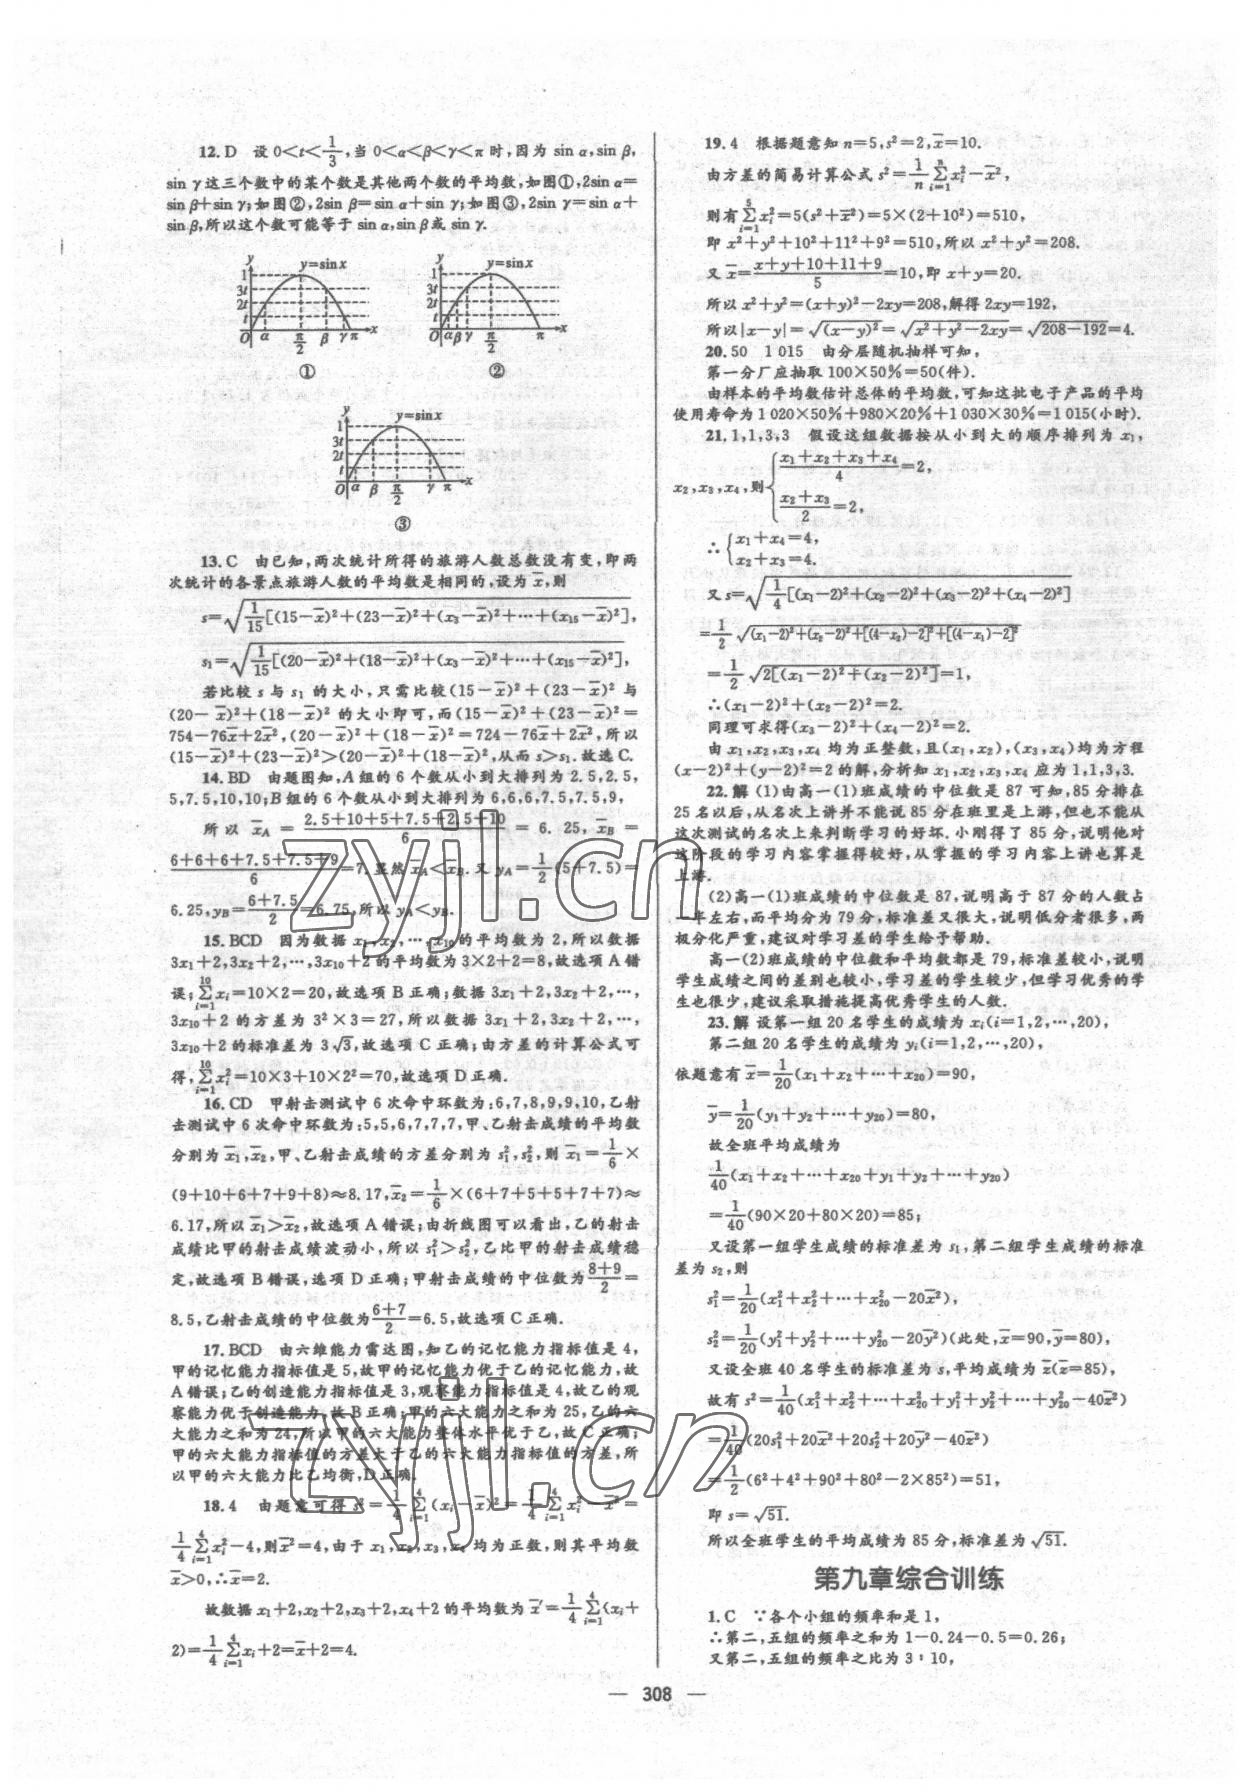 12.D 设0<t<1/3,当0<α<β<γ<π时,因为sin α,sin β,
sin γ这三个数中的某个数是其他两个数的平均数,如图①,2sin α=
sin β+sin γ;如图②,2sin β=sin α+sin γ;如图③,2sin γ=sin α+
sin β,所以这个数可能等于sin α,sin β或sin γ.
y y=sin x 1 3t 2t t O α π/2 β γ π x
①
y y=sin x 1 3t 2t t O α β γ π/2 π x
②
y y=sin x 1 3t 2t t O α β π/2 γ π x
③
13.C 由已知,两次统计所得的旅游人数总数没有变,即两
次统计的各景点旅游人数的平均数是相同的,设为x̄,则
s=√(1/15[(15-x̄)²+(23-x̄)²+(x₃-x̄)²+⋯+(x₁₅-x̄)²]),
s₁=√(1/15[(20-x̄)²+(18-x̄)²+(x₃-x̄)²+⋯+(x₁₅-x̄)²]),
若比较s与s₁的大小,只需比较(15-x̄)²+(23-x̄)²与
(20-x̄)²+(18-x̄)²的大小即可,而(15-x̄)²+(23-x̄)²=
754-76x̄+2x̄²,(20-x̄)²+(18-x̄)²=724-76x̄+2x̄²,所以
(15-x̄)²+(23-x̄)²>(20-x̄)²+(18-x̄)²,从而s>s₁.故选C.
14.BD 由题图知,A组的6个数从小到大排列为2.5,2.5,
5,7.5,10,10;B组的6个数从小到大排列为6,6,6,7.5,7.5,9,
所以x̄_A=(2.5+10+5+7.5+2.5+10)/6=6.25,x̄_B=
(6+6+6+7.5+7.5+9)/6=7.显然x̄_A<x̄_B.又y_A=1/2(5+7.5)=
6.25,y_B=(6+7.5)/2=6.75,所以y_A<y_B.
15.BCD 因为数据x₁,x₂,⋯,x₁₀的平均数为2,所以数据
3x₁+2,3x₂+2,⋯,3x₁₀+2的平均数为3×2+2=8,故选项A错
误;∑(i=1→10)xᵢ=10×2=20,故选项B正确;数据3x₁+2,3x₂+2,⋯,
3x₁₀+2的方差为3²×3=27,所以数据3x₁+2,3x₂+2,⋯,
3x₁₀+2的标准差为3√3,故选项C正确;由方差的计算公式可
得,∑(i=1→10)xᵢ²=10×3+10×2²=70,故选项D正确.
16.CD 甲射击测试中6次命中环数为:6,7,8,9,9,10,乙射
击测试中6次命中环数为:5,5,6,7,7,7,甲、乙射击成绩的平均数
分别为x̄₁,x̄₂,甲、乙射击成绩的方差分别为s₁²,s₂²,则x̄₁=1/6×
(9+10+6+7+9+8)≈8.17,x̄₂=1/6×(6+7+5+5+7+7)≈
6.17,所以x̄₁>x̄₂,故选项A错误;由折线图可以看出,乙的射击
成绩比甲的射击成绩波动小,所以s₁²>s₂²,乙比甲的射击成绩稳
定,故选项B错误,选项D正确;甲射击成绩的中位数为(8+9)/2=
8.5,乙射击成绩的中位数为(6+7)/2=6.5,故选项C正确.
17.BCD 由六维能力雷达图,知乙的记忆能力指标值是4,
甲的记忆能力指标值是5,故甲的记忆能力优于乙的记忆能力,故
A错误;乙的创造能力指标值是3,观察能力指标值是4,故乙的观
察能力优于创造能力,故B正确;甲的六大能力之和为25,乙的六
大能力之和为24,所以甲的六大能力整体水平优于乙,故C正确;
甲的六大能力指标值的方差大于乙的六大能力指标值的方差,所
以甲的六大能力比乙均衡,D正确.
18.4 由题意可得s²=1/4∑(i=1→4)(xᵢ-x̄)²=1/4∑(i=1→4)xᵢ²-x̄²=
1/4∑(i=1→4)xᵢ²-4,则x̄²=4,由于x₁,x₂,x₃,x₄均为正数,则其平均数
x̄>0,∴x̄=2.
故数据x₁+2,x₂+2,x₃+2,x₄+2的平均数为x̄′=1/4∑(i=1→4)(xᵢ+
2)=1/4∑(i=1→4)xᵢ+2=x̄+2=4.
19.4 根据题意知n=5,s²=2,x̄=10.
由方差的简易计算公式s²=1/n∑(i=1→n)xᵢ²-x̄²,
则有∑(i=1→5)xᵢ²=5(s²+x̄²)=5×(2+10²)=510,
即x²+y²+10²+11²+9²=510,所以x²+y²=208.
又x̄=(x+y+10+11+9)/5=10,即x+y=20.
所以x²+y²=(x+y)²-2xy=208,解得2xy=192,
所以|x-y|=√(x-y)²=√(x²+y²-2xy)=√(208-192)=4.
20.50 1 015 由分层随机抽样可知,
第一分厂应抽取100×50%=50(件).
由样本的平均数估计总体的平均数,可知这批电子产品的平均
使用寿命为1 020×50%+980×20%+1 030×30%=1 015(小时).
21.1,1,3,3 假设这组数据按从小到大的顺序排列为x₁,
x₂,x₃,x₄,则{(x₁+x₂+x₃+x₄)/4=2,
(x₂+x₃)/2=2,
∴{x₁+x₄=4,
x₂+x₃=4.
又s=√(1/4[(x₁-2)²+(x₂-2)²+(x₃-2)²+(x₄-2)²])
=1/2√((x₁-2)²+(x₂-2)²+[(4-x₂)-2]²+[(4-x₁)-2]²)
=1/2√(2[(x₁-2)²+(x₂-2)²])=1,
∴(x₁-2)²+(x₂-2)²=2.
同理可求得(x₃-2)²+(x₄-2)²=2.
由x₁,x₂,x₃,x₄均为正整数,且(x₁,x₂),(x₃,x₄)均为方程
(x-2)²+(y-2)²=2的解,分析知x₁,x₂,x₃,x₄应为1,1,3,3.
22.解 (1)由高一(1)班成绩的中位数是87可知,85分排在
25名以后,从名次上讲并不能说85分在班里是上游,但也不能从
这次测试的名次上来判断学习的好坏.小刚得了85分,说明他对
这阶段的学习内容掌握得较好,从掌握的学习内容上讲也算是
上游.
(2)高一(1)班成绩的中位数是87,说明高于87分的人数占
一半左右,而平均分为79分,标准差又很大,说明低分者很多,两
极分化严重,建议对学习差的学生给予帮助.
高一(2)班成绩的中位数和平均数都是79,标准差较小,说明
学生成绩之间的差别也较小,学习差的学生较少,但学习优秀的学
生也很少,建议采取措施提高优秀学生的人数.
23.解 设第一组20名学生的成绩为xᵢ(i=1,2,⋯,20),
第二组20名学生的成绩为yᵢ(i=1,2,⋯,20),
依题意有x̄=1/20(x₁+x₂+⋯+x₂₀)=90,
ȳ=1/20(y₁+y₂+⋯+y₂₀)=80,
故全班平均成绩为
1/40(x₁+x₂+⋯+x₂₀+y₁+y₂+⋯+y₂₀)
=1/40(90×20+80×20)=85;
又设第一组学生成绩的标准差为s₁,第二组学生成绩的标准
差为s₂,则
s₁²=1/20(x₁²+x₂²+⋯+x₂₀²-20x̄²),
s₂²=1/20(y₁²+y₂²+⋯+y₂₀²-20ȳ²)(此处,x̄=90,ȳ=80),
又设全班40名学生的标准差为s,平均成绩为z̄(z̄=85),
故有s²=1/40(x₁²+x₂²+⋯+x₂₀²+y₁²+y₂²+⋯+y₂₀²-40z̄²)
=1/40(20s₁²+20x̄²+20s₂²+20ȳ²-40z̄²)
=1/2(6²+4²+90²+80²-2×85²)=51,
即s=√51.
所以全班学生的平均成绩为85分,标准差为√51.
第九章综合训练
1.C ∵各个小组的频率和是1,
∴第二,五组的频率之和为1-0.24-0.5=0.26;
又第二,五组的频率之比为3∶10,
— 308 —
zyjl.cn
zyjl.cn